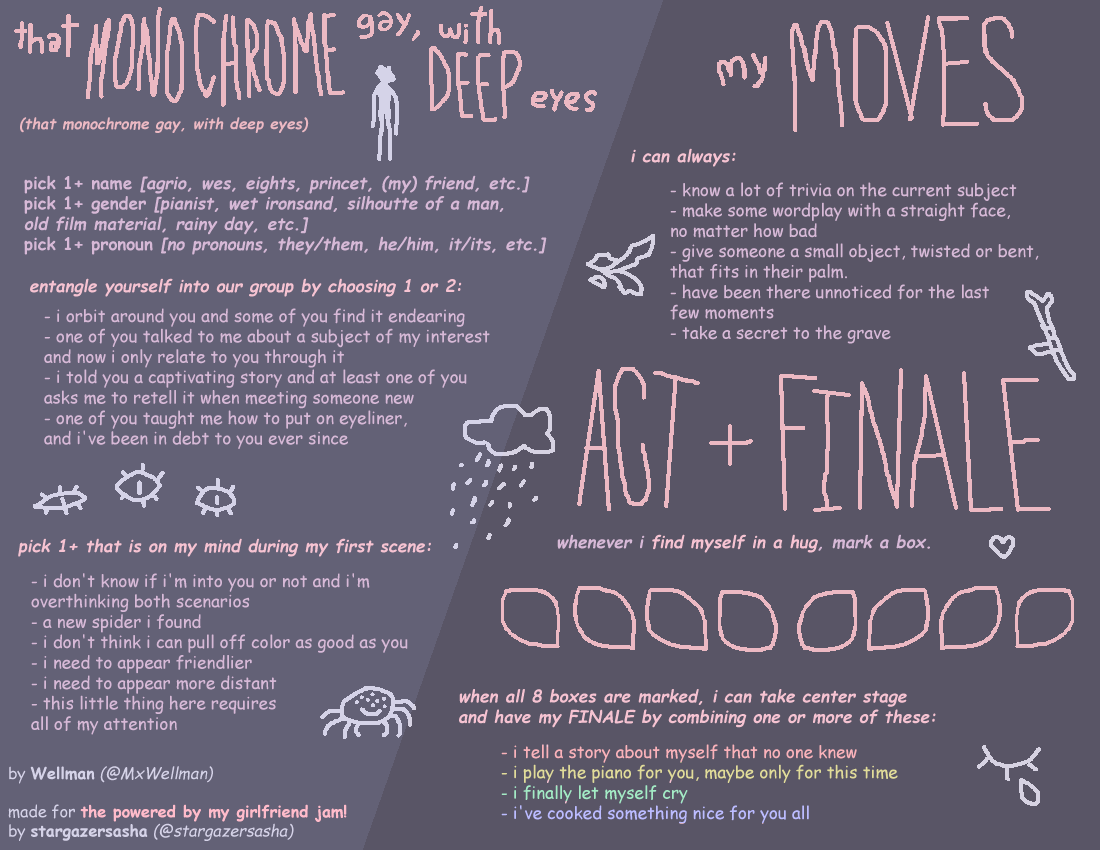 that MONOCHROME gay, with DEEP eyes
(that monochrome gay, with deep eyes)
pick 1+ name [agrio, wes, eights, princet, (my) friend, etc.]
pick 1+ gender [pianist, wet ironsand, silhoutte of a man,
old film material, rainy day, etc.]
pick 1+ pronoun [no pronouns, they/them, he/him, it/its, etc.]
entangle yourself into our group by choosing 1 or 2:
- i orbit around you and some of you find it endearing
- one of you talked to me about a subject of my interest
and now i only relate to you through it
- i told you a captivating story and at least one of you
asks me to retell it when meeting someone new
- one of you taught me how to put on eyeliner,
and i've been in debt to you ever since
pick 1+ that is on my mind during my first scene:
- i don't know if i'm into you or not and i'm
overthinking both scenarios
- a new spider i found
- i don't think i can pull off color as good as you
- i need to appear friendlier
- i need to appear more distant
- this little thing here requires
all of my attention
by Wellman (@MxWellman)
made for the powered by my girlfriend jam!
by stargazersasha (@stargazersasha)
my MOVES
i can always:
- know a lot of trivia on the current subject
- make some wordplay with a straight face,
no matter how bad
- give someone a small object, twisted or bent,
that fits in their palm.
- have been there unnoticed for the last
few moments
- take a secret to the grave
ACT + FINALE
whenever i find myself in a hug, mark a box.
when all 8 boxes are marked, i can take center stage
and have my FINALE by combining one or more of these:
- i tell a story about myself that no one knew
- i play the piano for you, maybe only for this time
- i finally let myself cry
- i've cooked something nice for you all